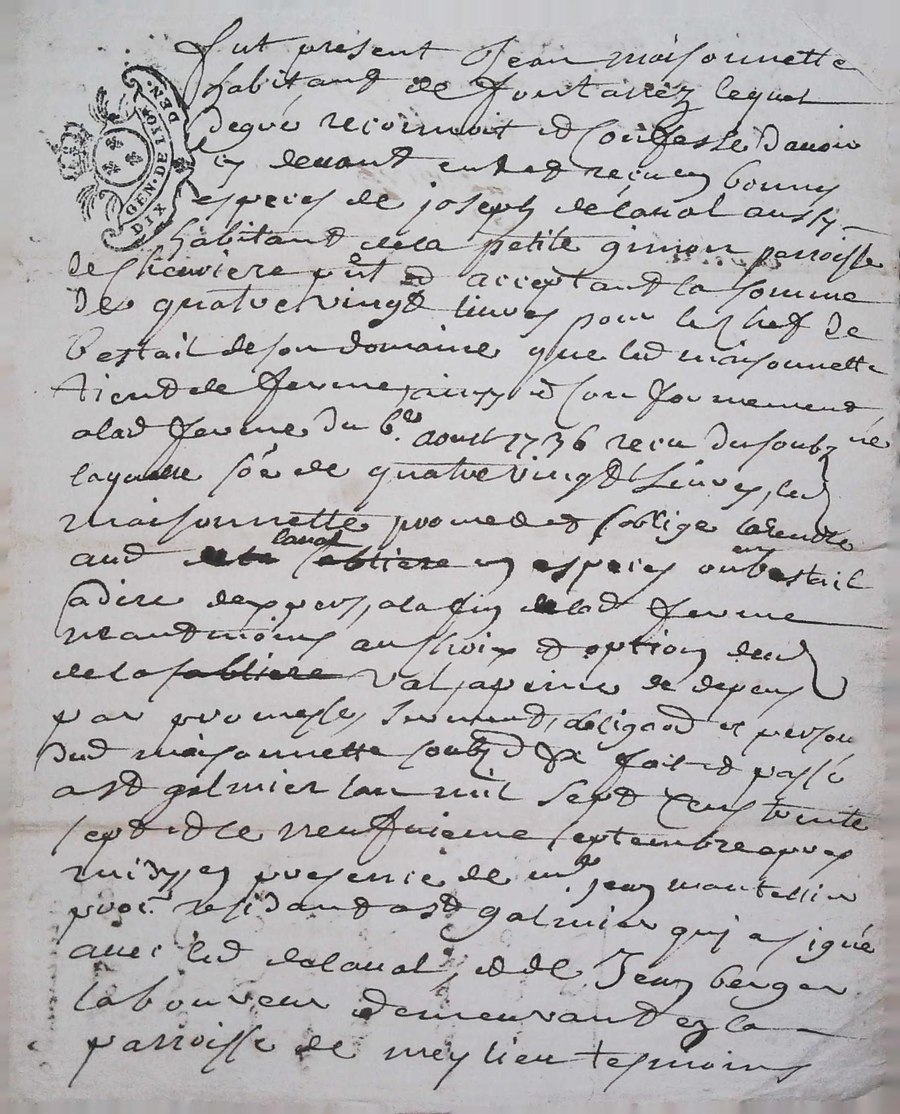 GEN. DE LYON
DIX DEN.
fut present Jean maisonnette
habitant de fontanez lequel
degré reconnoit et confesse davoir
cy devant eu et reçu en bonnes
especes de joseph delaval aussy
habitant de la petite gimon parroisse
de chevriere pnt et acceptant la somme
de quatre vingt livres pour le chef de
bestail de son domaine que led maisonnette
tient de ferme, ainsy et conformement
a lad ferme du 6e aoust 1736 recu du soubz né
laquelle soe de quatre vingt livres, led
maisonnette promet et soblige rendre
aud laval en especes ou en bestail
a dire dexpers, a la fin de lad ferme
neantmoins au choix et option dud
de la val, a peine de depens
par promesse, serment, obligaon et person
dud maisonnette soubz et &c fait et passé
a st galmier lan mil sept cens trente
sept et le neufvieme septembre apres
midy en presence de me jean mantellier
procr residant a st galmier quy a signé
avec led delaval, et de Jean berger
laboureur demeurant en la
parroisse de meylieu tesmoins